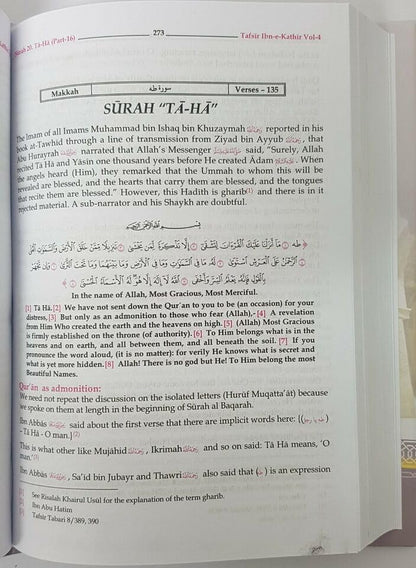 Surah 20. Tā-Hā (Part-16)
273
Tafsir Ibn-e-Kathir Vol-4
Makkah
سورة طه
Verses – 135
SŪRAH “TĀ-HĀ”
The Imam of all Imams Muhammad bin Ishaq bin Khuzaymah reported in his
book at-Tawhid through a line of transmission from Ziyad bin Ayyub, that
Abu Hurayrah narrated that Allah's Messenger said, “Surely, Allah
recited Tā Hā and Yāsin one thousand years before He created Ādam. When
the angels heard (Him), they remarked that the Ummah to whom this will be
revealed are blessed, and the hearts that carry them are blessed, and the tongues
that recite them are blessed.” However, this Hadith is gharib[1] and there is in it
rejected material. A sub-narrator and his Shaykh are doubtful.
طه ۝ مَا أَنْزَلْنَا عَلَيْكَ الْقُرْآنَ لِتَشْقَى ۝ إِلَّا تَذْكِرَةً لِمَنْ يَخْشَى ۝ تَنْزِيلًا مِمَّنْ خَلَقَ الْأَرْضَ وَالسَّمَوَاتِ الْعُلَى
۝ الرَّحْمَنُ عَلَى الْعَرْشِ اسْتَوَى ۝ لَهُ مَا فِي السَّمَوَاتِ وَمَا فِي الْأَرْضِ وَمَا بَيْنَهُمَا وَمَا تَحْتَ الثَّرَى ۝ وَإِنْ تَجْهَرْ
بِالْقَوْلِ فَإِنَّهُ يَعْلَمُ السِّرَّ وَأَخْفَى ۝ اللَّهُ لَا إِلَهَ إِلَّا هُوَ لَهُ الْأَسْمَاءُ الْحُسْنَى ۝
In the name of Allah, Most Gracious, Most Merciful.
[1] Tā Hā.[2] We have not sent down the Qur'an to you to be (an occasion) for your
distress,[3] But only as an admonition to those who fear (Allah),-[4] A revelation
from Him Who created the earth and the heavens on high.[5] (Allah) Most Gracious
is firmly established on the throne (of authority).[6] To Him belongs what is in the
heavens and on earth, and all between them, and all beneath the soil. [7] If you
pronounce the word aloud, (it is no matter): for verily He knows what is secret and
what is yet more hidden.[8] Allah! There is no god but He! To Him belong the most
Beautiful Names.
Qur'ān as admonition:
We need not repeat the discussion on the isolated letters (Hurūf Muqatta'āt) because
we spoke on them at length in the beginning of Sūrah al Baqarah.
Ibn Abbās said about the first verse that there are implicit words here: {(
– Tā Hā - O man.}[2]
This is what other like Mujāhid, Ikrimah and so on said: Tā Hā means, ‘O
man.’[3]
Ibn Abbās, Sa'id bin Jubayr and Thawri also said that (طه) is an expression
[1] See Risalah Khairul Usūl for the explanation of the term gharib.
[2] Ibn Abu Hatim
[3] Tafsir Tabari 8/389, 390